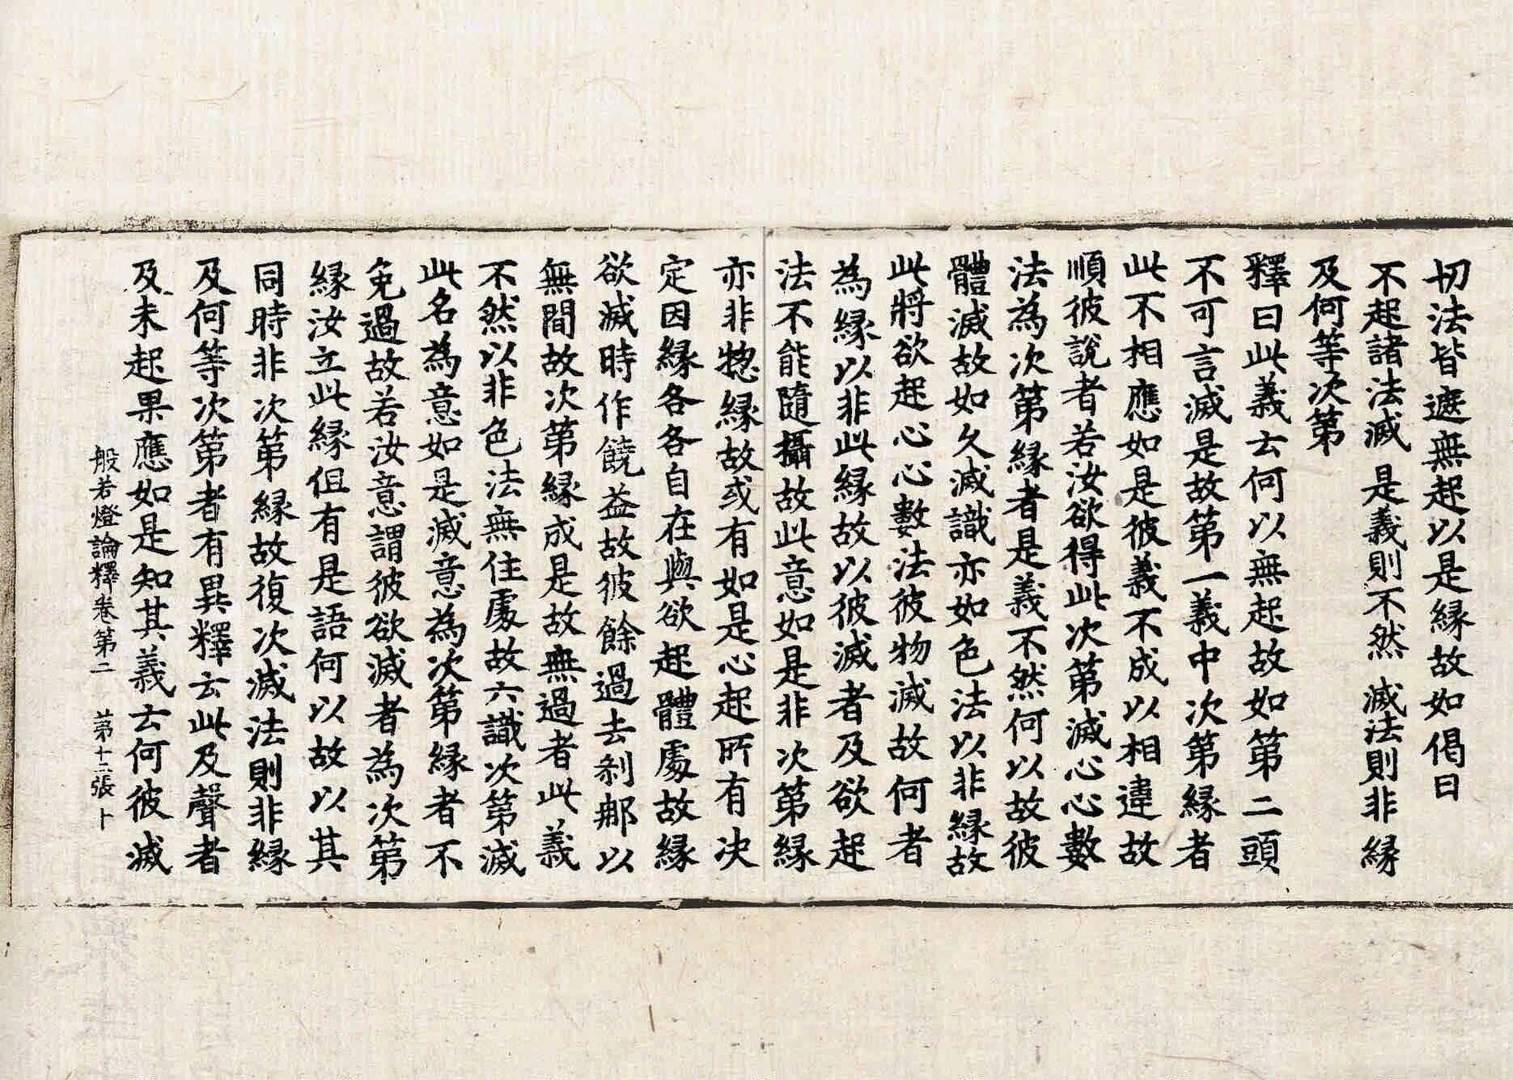 切法皆遮無起以是緣故如偈曰
不起諸法滅 是義則不然 滅法則非緣
及何等次第
釋曰此義云何以無起故如第二頭
不可言滅是故第一義中次第緣者
此不相應如是彼義不成以相違故
順彼說者若汝欲得此次第滅心心數
法為次第緣者是義不然何以故彼
體滅故如久滅識亦如色法以非緣故
此將欲起心心數法彼物滅故何者
為緣以非此緣故以彼滅者及欲起
法不能隨攝故此意如是非次第緣
亦非惣緣故或有如是心起所有決
定因緣各各自在與欲起體處故緣
欲滅時作饒益故彼餘過去剎那以
無間故次第緣成是故無過者此義
不然以非色法無住處故六識次第滅
此名為意如是滅意為次第緣者不
免過故若汝意謂彼欲滅者為次第
緣汝立此緣但有是語何以故以其
同時非次第緣故復次滅法則非緣
及何等次第者有異釋云此及聲者
及未起果應如是知其義云何彼滅
般若燈論釋卷第二 第十二張 卜